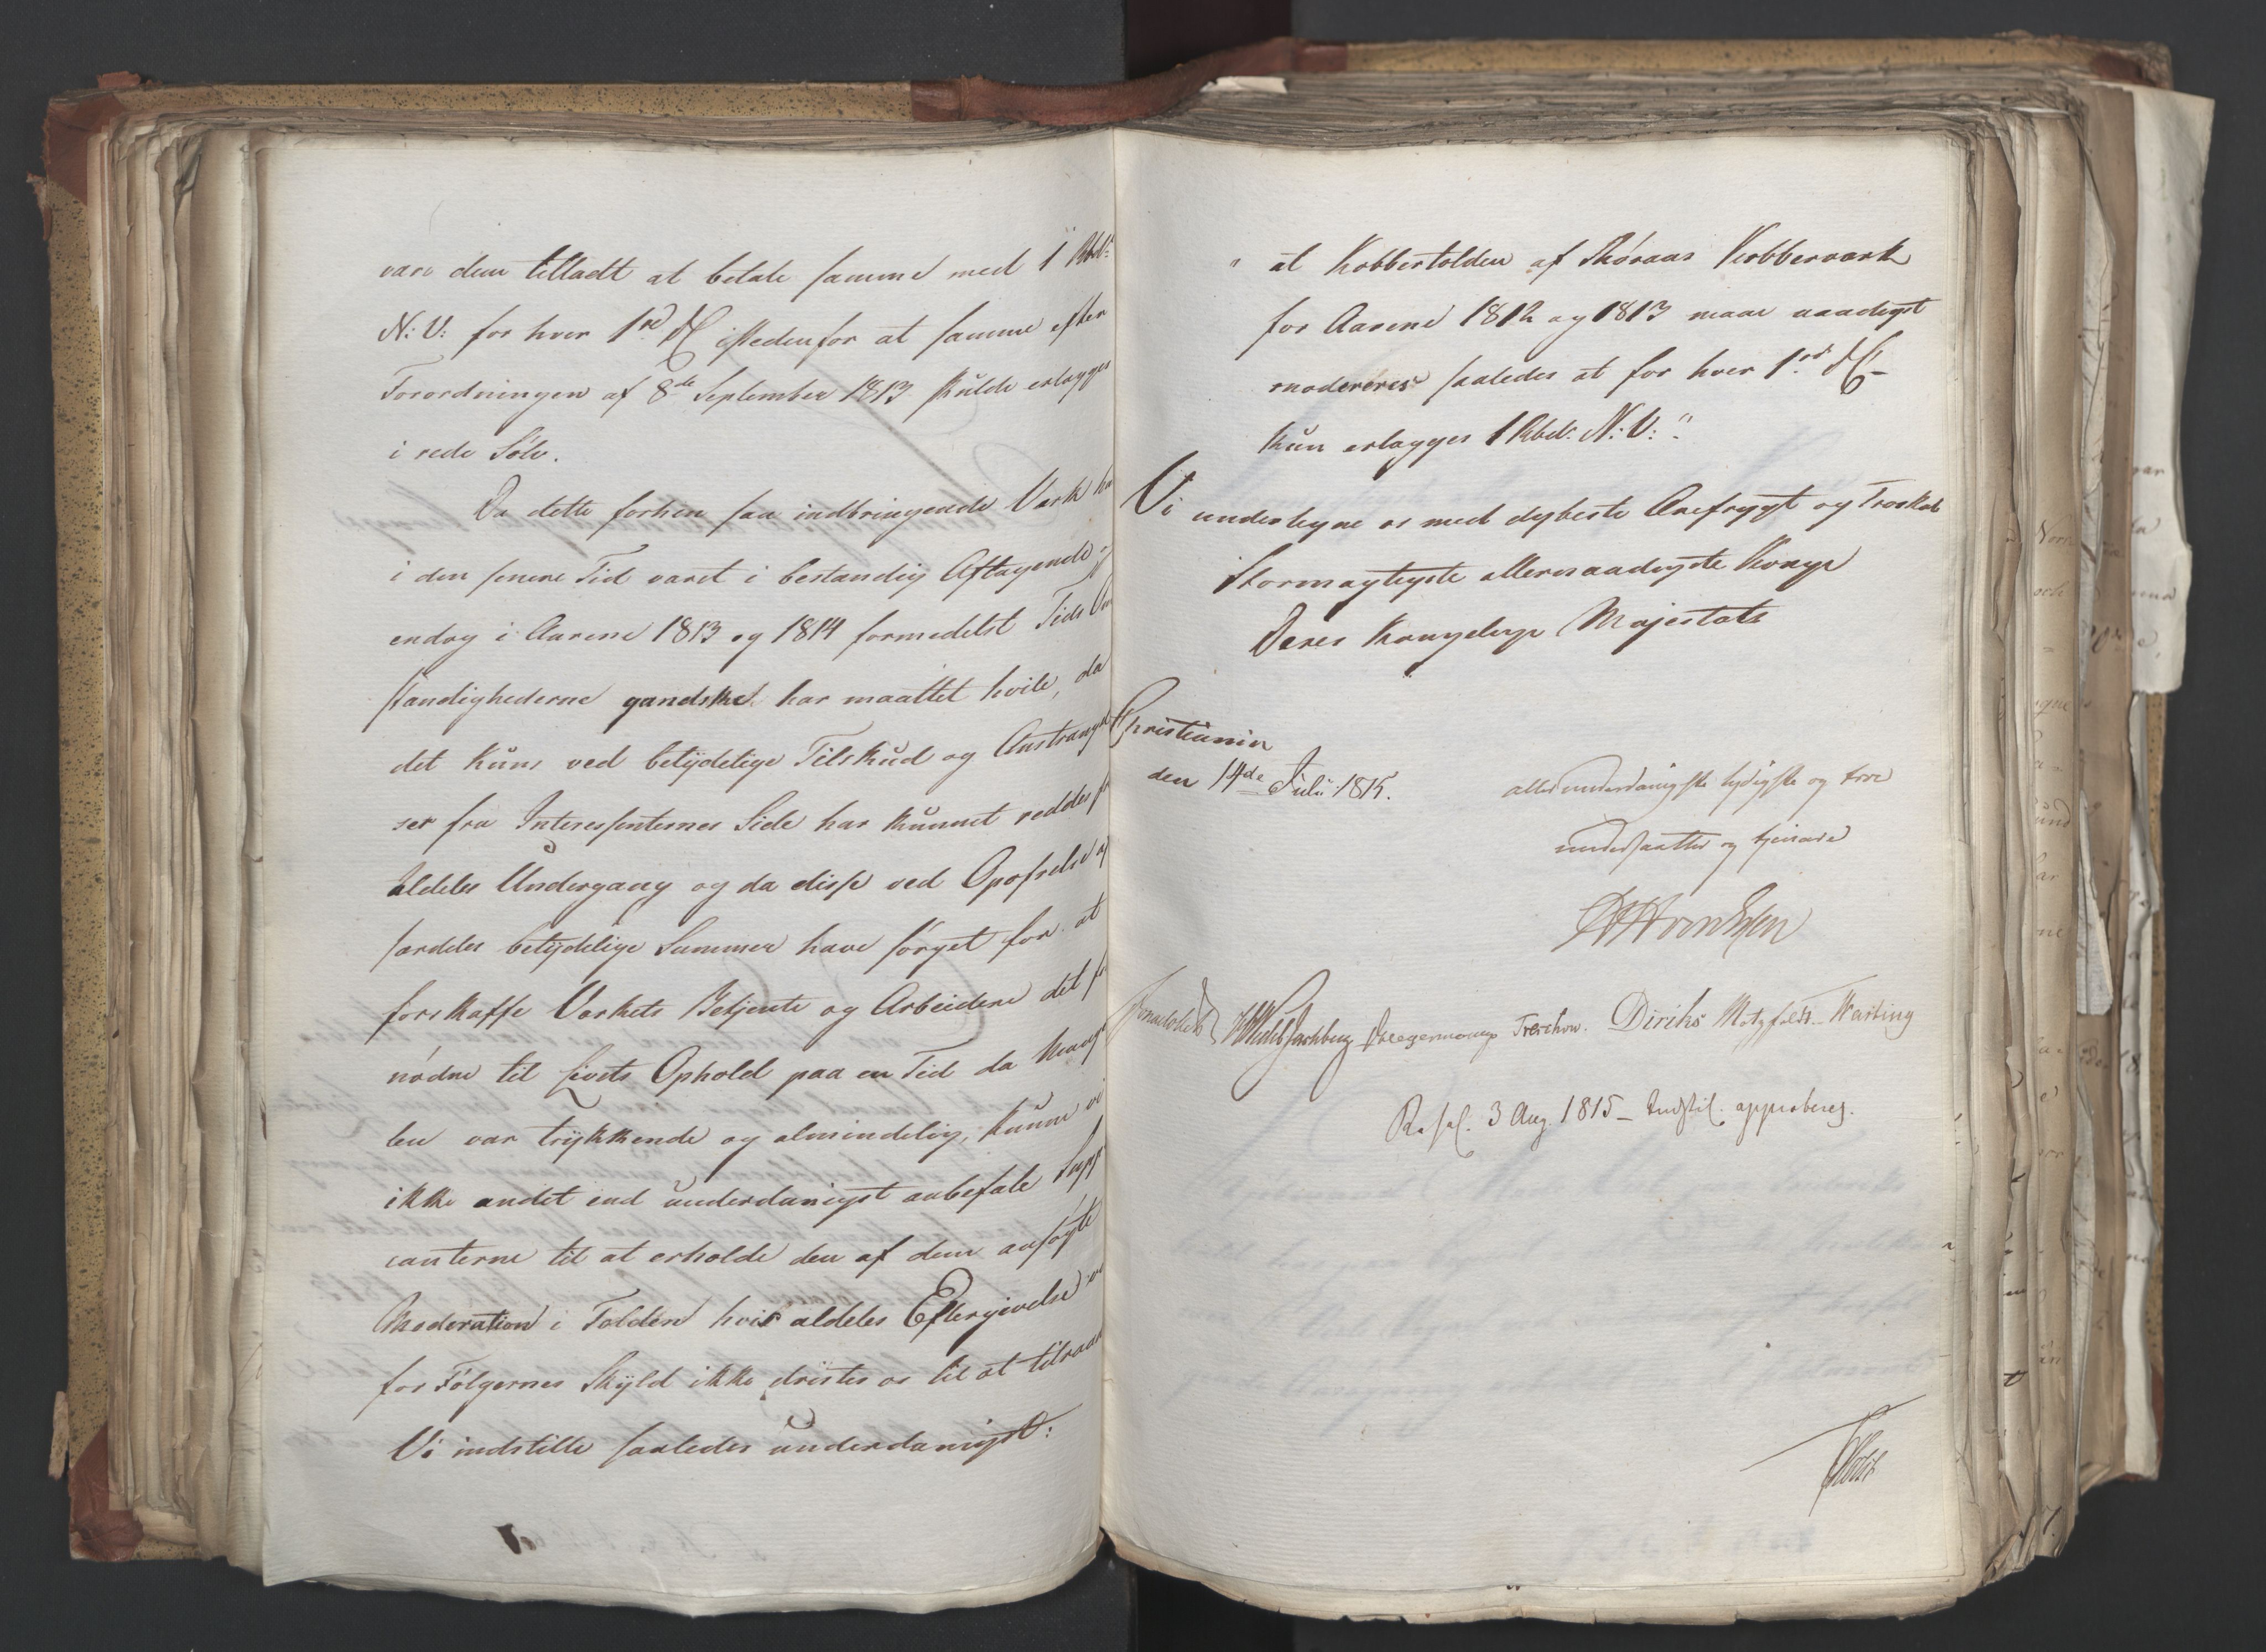 være dem tilladt at betale samme med 1 Rbdr
N: V: for hver 1 rd istedenfor at samme efter
Forordningen af 8de September 1813 skulde erlægges
i rede Sølv.
Da dette forhen saa indbringende Værk ha
i den senere Tid været i bestandig Aftagende,
endog i Aarene 1813 og 1814 formedelst Tids Om
stændighederne gandske har maattet hvile, da
det kuns ved betydelige Tilskud og Anstrængel
ser fra Interessenternes Side har kunnet reddes fr
aldeles Undergang og da disse ved Opofrelse af
særdeles betydelige Summer have sørget for at
forskaffe Værkets Betjente og Arbeidere det for
nødne til Livets Ophold paa en Tid da Mange
len var trykkende og almindelig, kunne vi
ikke andet end underdanigst anbefale Suppli
canterne til at erholde den af dem ansøgte
Moderation i Tolden hvis aldeles Eftergivelse vi
for Følgernes Skyld ikke drister os til at tilraade
Vi indstille saaledes underdanigst:
" at Kobbertolden af Røraas Kobberværk
for Aarene 1812 og 1813 maae naadigst
modereres saaledes at for hver 1 rd
kun erlægges 1 Rbdr. N: V: "
Vi undertegne os med dybeste Ærefrygt og Troskab
Stormægtigste allernaadigste Konge
Deres Kongelige Majestæts
Christiania
den 14de Julii 1815.
allerunderdanigste lydigste og troe
undersaatter og tjenere
Treschow. Diriks Motzfeldt
Resol. 3 Aug. 1815 – Indstil. approberes.